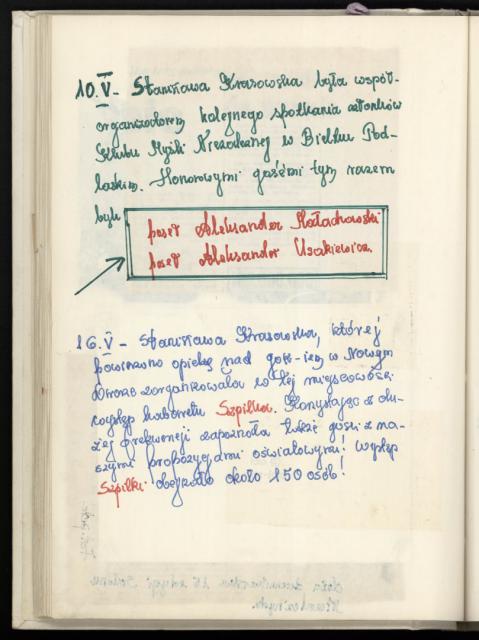 10.V - Stanisława Krasowska była współ-
organizatorem kolejnego spotkania członków
Klubu Myśli Niezależnej w Bielsku Pod-
laskim. Honorowymi gośćmi tym razem
byli
poseł Aleksander Małachowski
poseł Aleksander Usakiewicz.
16.V - Stanisława Krasowska, której
powierzono opiekę nad gośc-iem w Nowym
Dworze zorganizowała w tej miejscowości
występ kabaretu Szpilka. Korzystając z du-
żej frekwencji zapoznała także gości z na-
szymi propozycjami oświatowymi! Występ
Szpilki obejrzało około 150 osób!